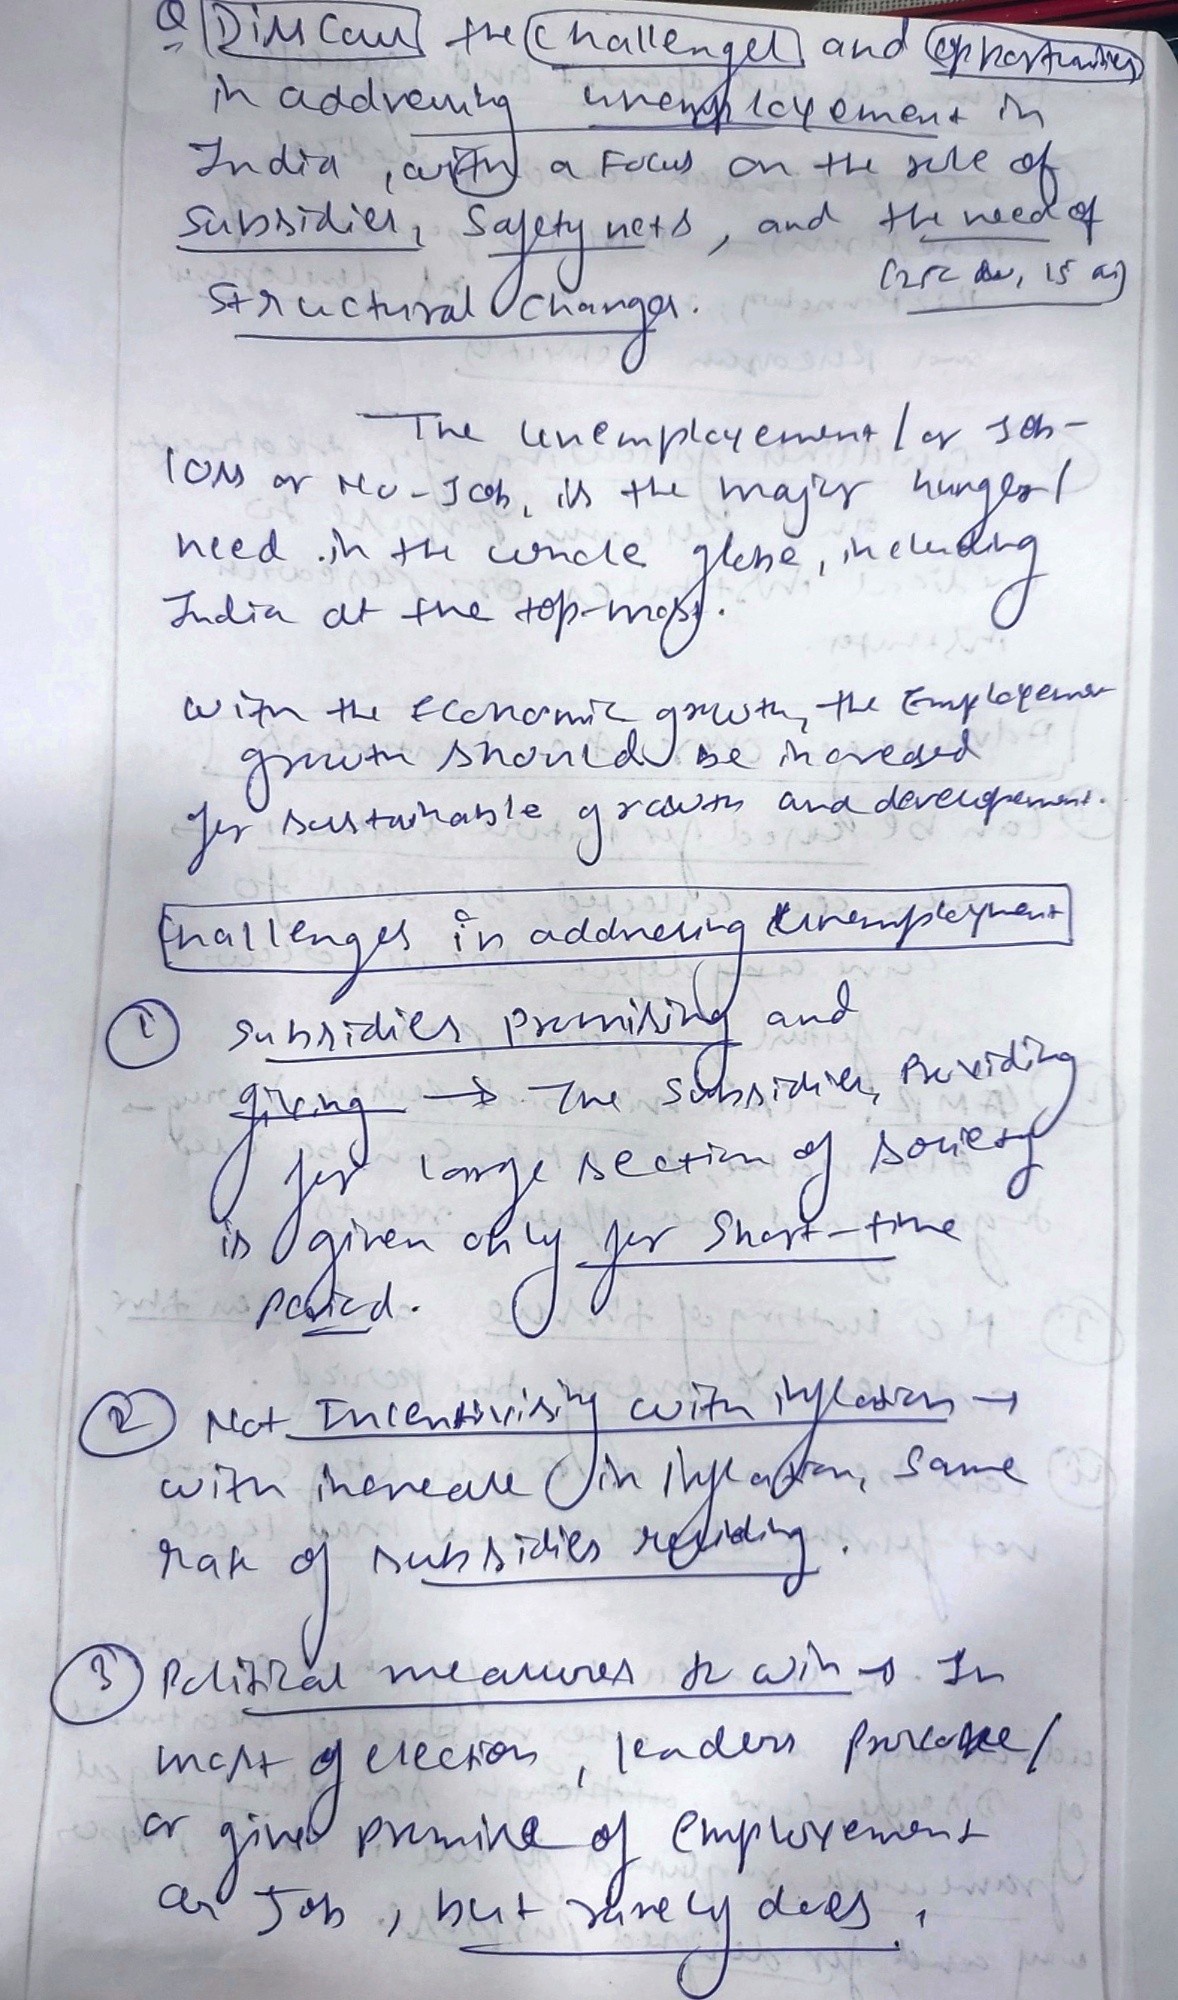 Q Discuss the challenges and opportunities
in addressing unemployement in
India, with a Focus on the role of
subsidies, Safety nets, and the need of
structural changes. (250 , 15 )
The unemployement/or Job-
loss or No-Job, is the major hunger/
need in the whole globe, including
India at the top-most.
with the Economic growth, the Employement
growth should be increased
for sustainable growth and developement.
Challenges in addressing Unemployment
① Subsidies promising and
giving → The Subsidies, Providing
for large section of society
is given only for Short-time
period.
② Not Incentivising with inflation →
with increase in inflation, same
rate of subsidies
③ Political measures to win → In
most of election, leaders /
or gives promise of employement
or Job, but rarely does.